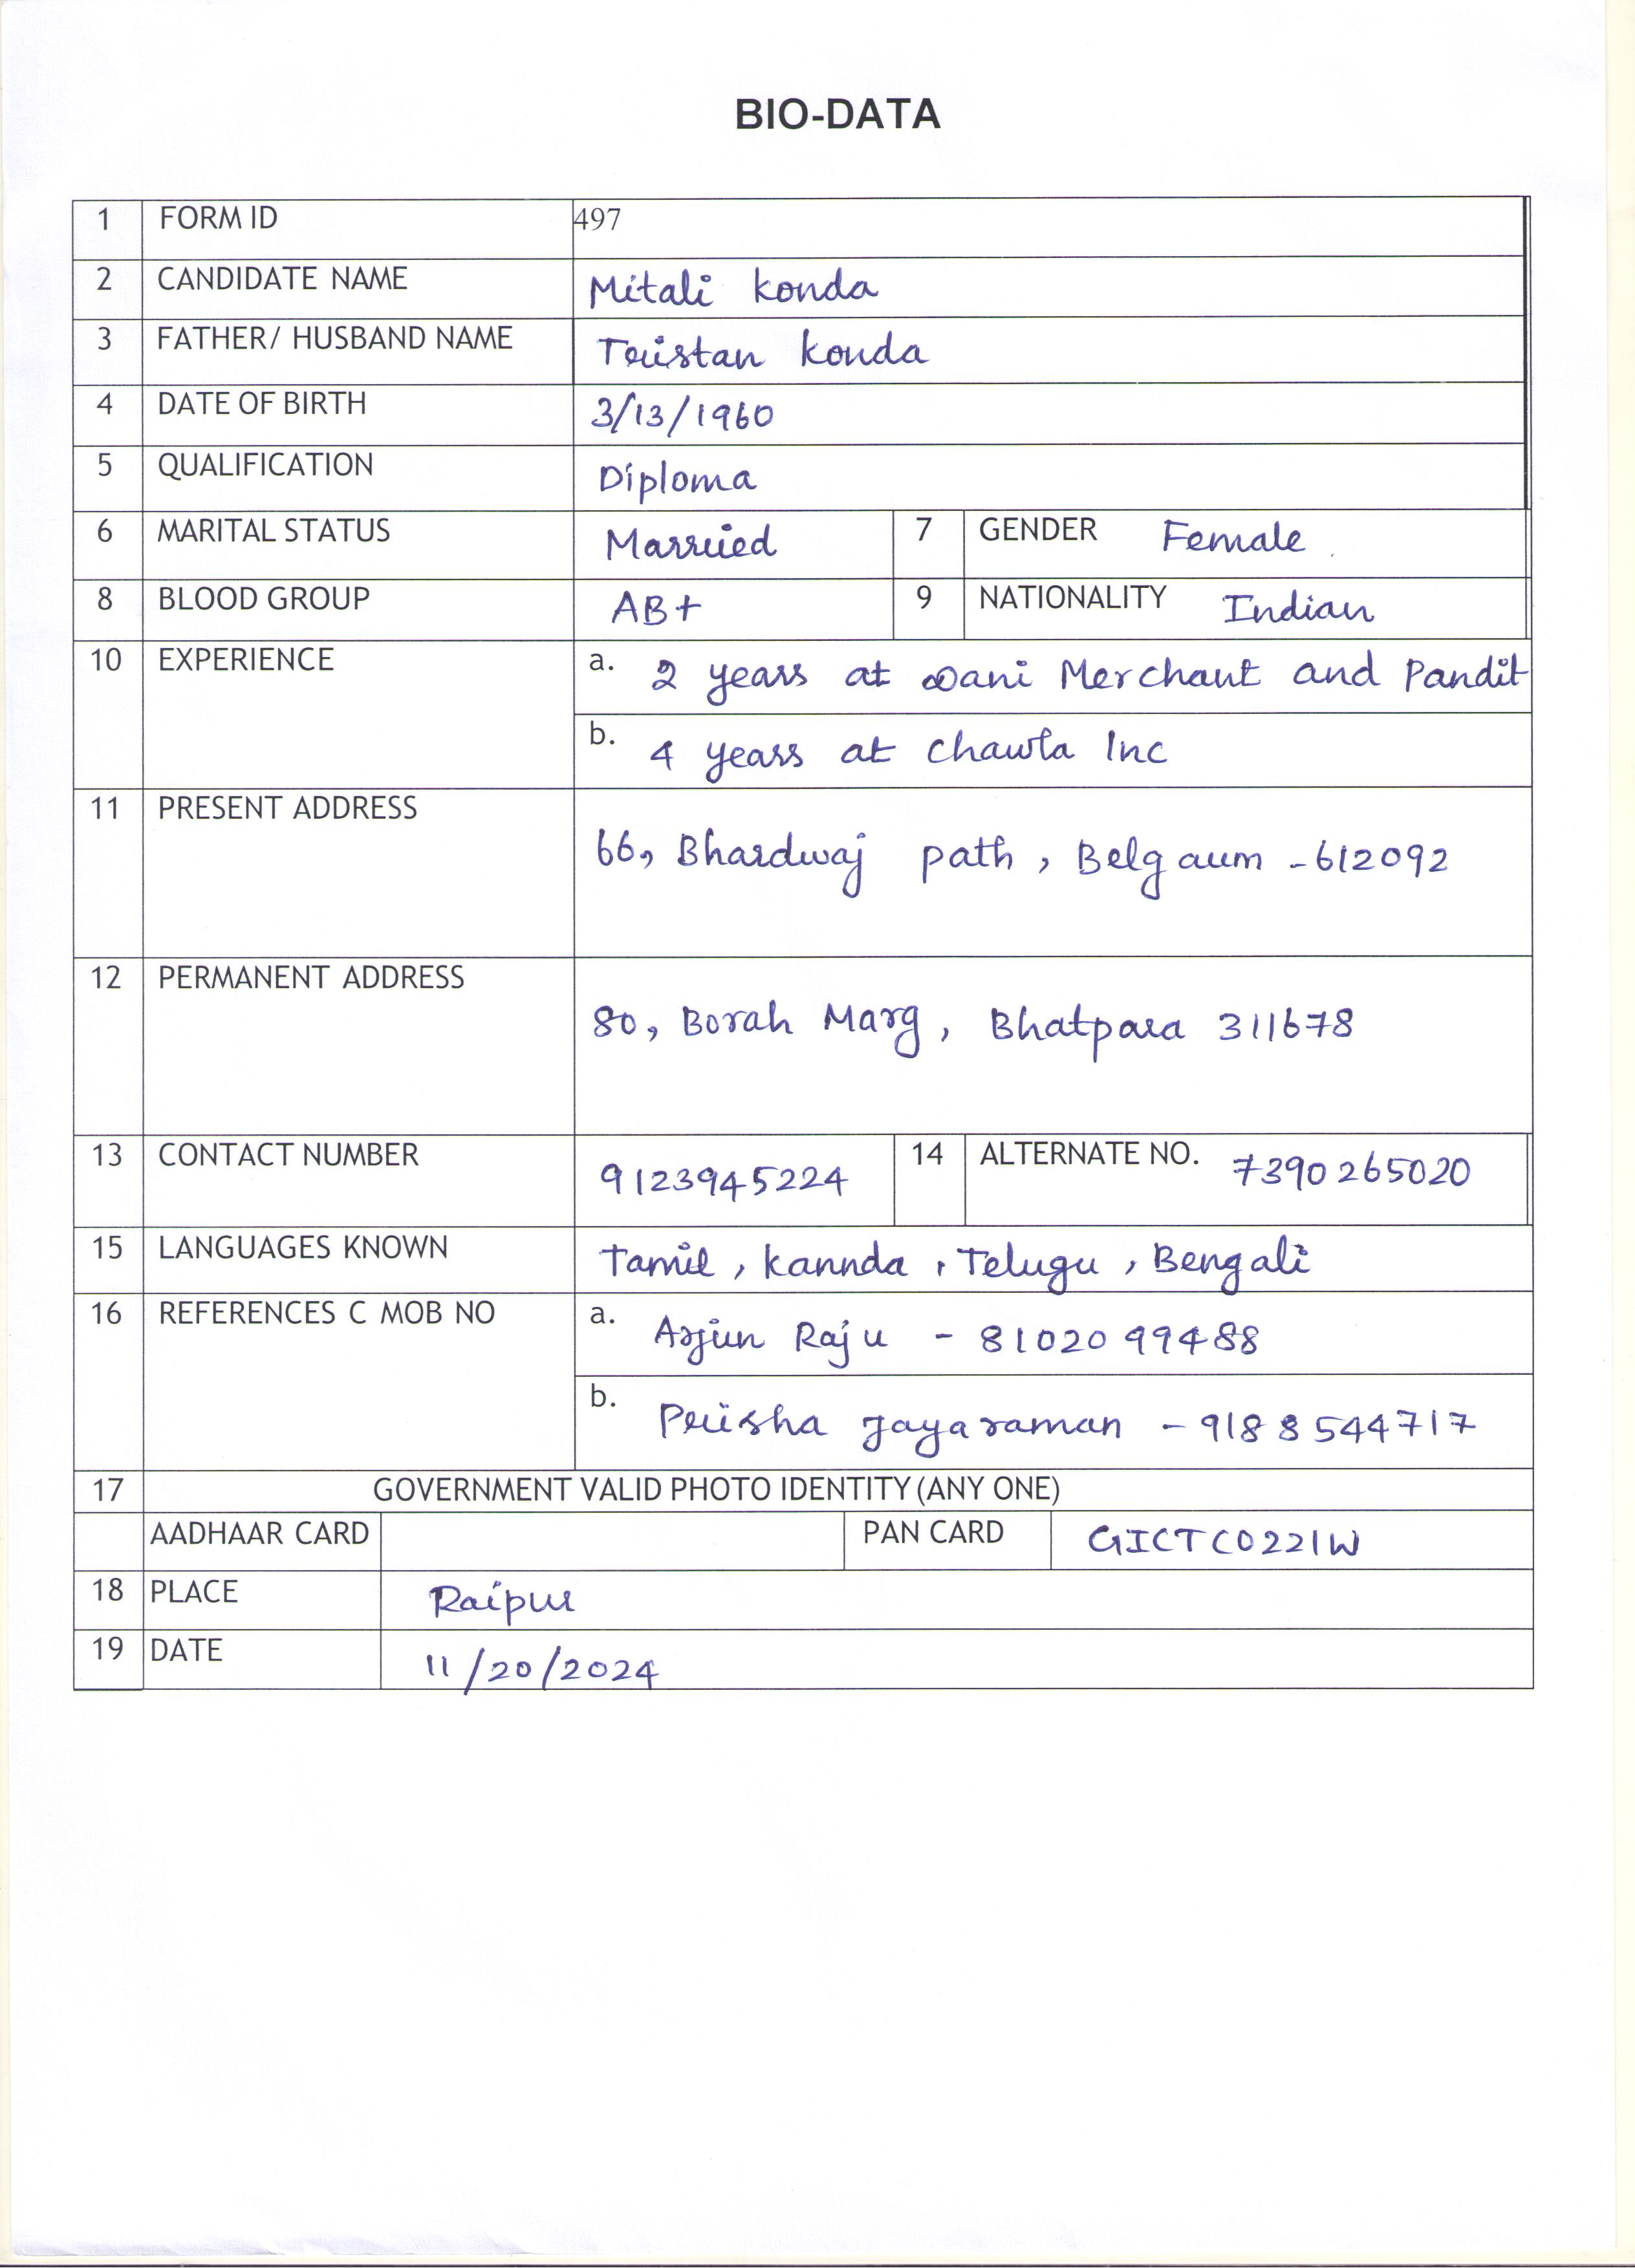 BIO-DATA
1 FORM ID 497
2 CANDIDATE NAME Mitali konda
3 FATHER/ HUSBAND NAME Tristan konda
4 DATE OF BIRTH 3/13/1960
5 QUALIFICATION Diploma
6 MARITAL STATUS Married 7 GENDER Female
8 BLOOD GROUP AB+ 9 NATIONALITY Indian
10 EXPERIENCE a. 2 years at Dani Merchant and Pandit
b. 4 years at Chawla Inc
11 PRESENT ADDRESS
66, Bhardwaj path, Belgaum -612092
12 PERMANENT ADDRESS
80, Borah Marg, Bhatpara 311678
13 CONTACT NUMBER 9123945224 14 ALTERNATE NO. 7390265020
15 LANGUAGES KNOWN Tamil, kannda, Telugu, Bengali
16 REFERENCES C MOB NO a. Arjun Raju - 8102099488
b. Prisha Jayaraman - 9188544717
17 GOVERNMENT VALID PHOTO IDENTITY (ANY ONE)
AADHAAR CARD PAN CARD GICTC0221W
18 PLACE Raipur
19 DATE 11/20/2024